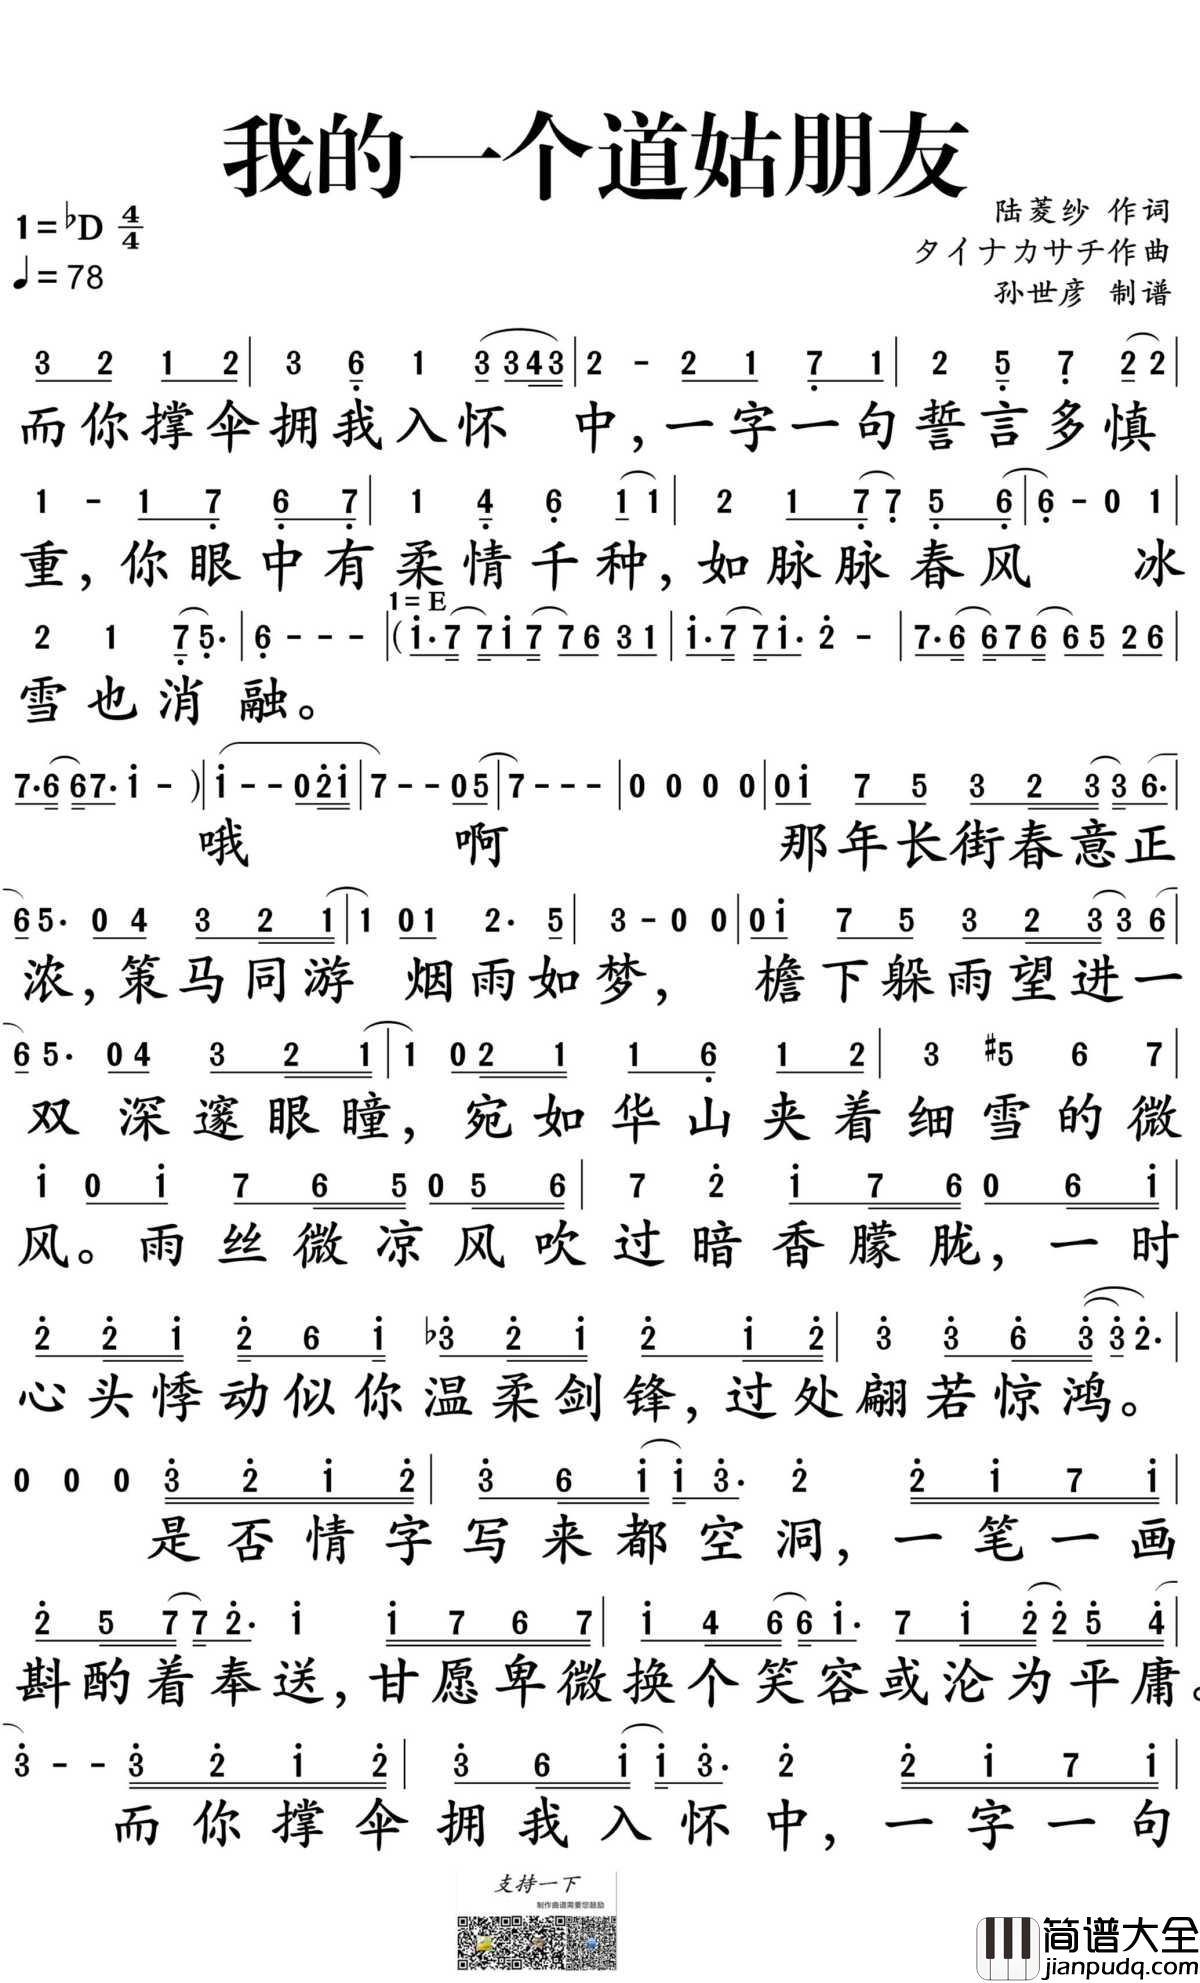 我的一个道姑朋友
1=♭D 4/4
♩=78
陆菱纱 作词
タイナカサチ作曲
孙世彦 制谱
3 2 1 2 | 3 6 1 3 3 4 3 | 2 - 2 1 7 1 | 2 5 7 2 2 |
而你撑伞拥我入怀 中,一字一句誓言多慎
1 - 1 7 6 7 | 1 4 6 1 1 | 2 1 7 7 5 6 | 6 - 0 1 |
重,你眼中有柔情千种,如脉脉春风 冰
1=E
2 1 7 5. | 6 - - - | (1. 7 7 1 7 7 6 3 1 | 1. 7 7 1. 2 - | 7. 6 6 7 6 6 5 2 6 |
雪也消融。
7. 6 6 7. 1 - ) | 1 - - 0 2 1 | 7 - - 0 5 | 7 - - - | 0 0 0 0 | 0 1 7 5 3 2 3 3 6. |
哦 啊 那年长街春意正
6 5. 0 4 3 2 1 | 1 0 1 2. 5 | 3 - 0 0 | 0 1 7 5 3 2 3 3 6 |
浓,策马同游 烟雨如梦, 檐下躲雨望进一
6 5. 0 4 3 2 1 | 1 0 2 1 1 6 1 2 | 3 #5 6 7 |
双 深邃眼瞳,宛如华山夹着细雪的微
1 0 1 7 6 5 0 5 6 | 7 2 1 7 6 0 6 1 |
风。雨丝微凉风吹过暗香朦胧,一时
2 2 1 2 6 1 ♭3 2 1 2 1 2 | 3 3 6 3 3 2. |
心头悸动似你温柔剑锋,过处翩若惊鸿。
0 0 0 3 2 1 2 | 3 6 1 1 3. 2 2 1 7 1 |
是否情字写来都空洞,一笔一画
2 5 7 7 2. 1 1 7 6 7 | 1 4 6 6 1. 7 1 2 2 5 4 |
斟酌着奉送,甘愿卑微换个笑容或沦为平庸。
3 - - 3 2 1 2 | 3 6 1 1 3. 2 2 1 7 1 |
而你撑伞拥我入怀中,一字一句
支持一下
制作曲谱需要您鼓励
简谱大全
jianpudq.com